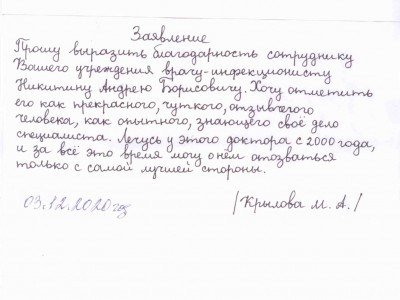 Заявление
Прошу выразить благодарность сотруднику
Вашего учреждения врачу-инфекционисту
Никитину Андрею Борисовичу. Хочу отметить
его как прекрасного, чуткого, отзывчегого
человека, как опытного, знающего своё дело
специалиста. Лечусь у этого доктора с 2000 года,
и за всё это время могу о нём отозваться
только с самой лучшей стороны.
03.12.2020 год /Крылова М. А./